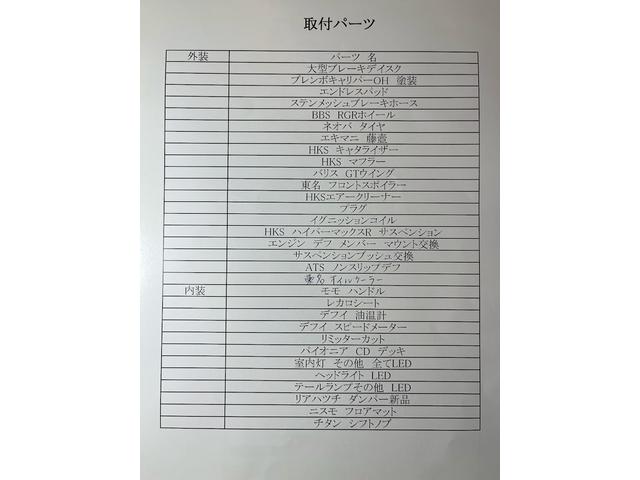 取付パーツ
外装 パーツ 名
大型ブレーキディスク
ブレンボキャリパーOH 塗装
エンドレスパッド
ステンメッシュブレーキホース
BBS RGRホイール
ネオバ タイヤ
エキマニ 藤壺
HKS キャタライザー
HKS マフラー
バリス GTウイング
東名 フロントスポイラー
HKSエアークリーナー
プラグ
イグニッションコイル
HKS ハイパーマックスR サスペンション
エンジン デフ メンバー マウント交換
サスペンションブッシュ交換
ATS ノンスリップデフ
東名 オイルクーラー
内装 モモ ハンドル
レカロシート
デフイ 油温計
デフイ スピードメーター
リミッターカット
パイオニア CD デッキ
室内灯 その他 全てLED
ヘッドライト LED
テールランプその他 LED
リアハツチ ダンパー新品
ニスモ フロアマット
チタン シフトノブ